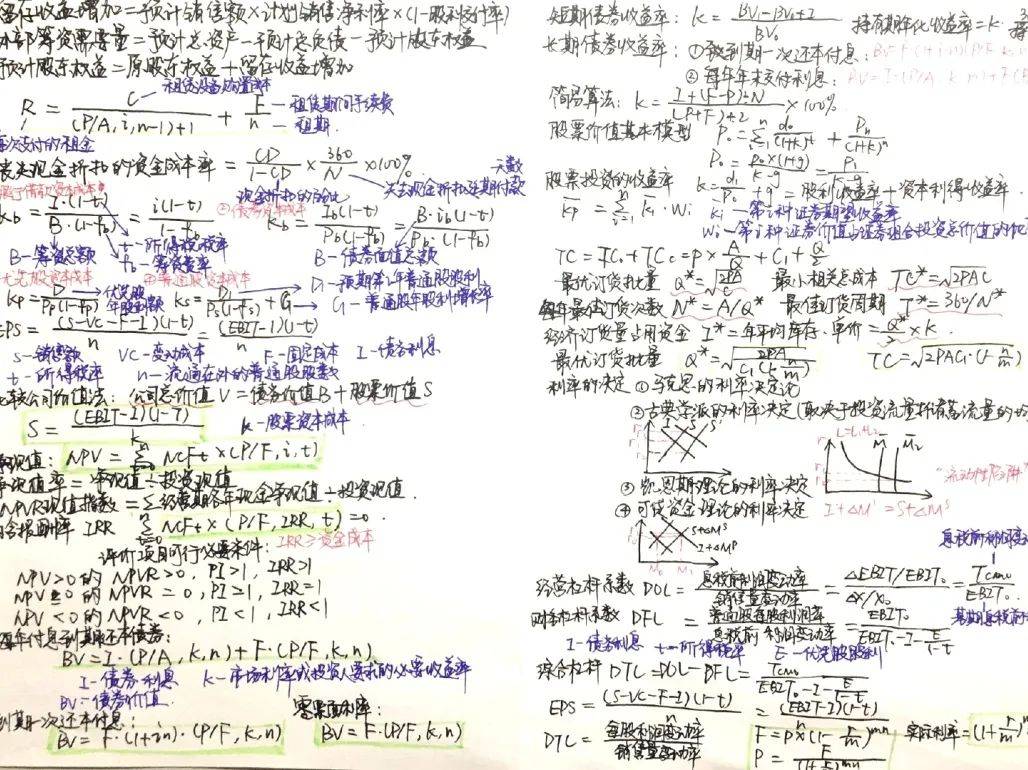 留存收益增加=预计销售额×计划销售净利率×(1-股利支付率)
外部筹资需要量=预计总资产-预计总负债-预计股东权益
预计股东权益=原股东权益+留存收益增加
R = C/((P/A,i,n-1)+1) + F/n
租赁期间手续费
租期
每次支付的租金
丧失现金折扣的资金成本率 = CD/(1-CD) × 360/N × 100%
天数
现金折扣的百分比
失去现金折扣延期付款
Kb = I·(1-t)/(B·(1-fb)) = i(1-t)/(1-fb)
②债券资本成本
Kb = Ib(1-t)/(Pb(1-fb)) = B·ib(1-t)/(Pb·(1-fb))
B-筹资总额
t-所得税税率
fb-筹资费率
B-债券面值总额
优先股资本成本
普通股资本成本
D-预期第1年普通股股利
G-普通股年股利增长率
Kp = D/(Pp(1-fp))
Ks = D1/(Ps(1-fs)) + G
EPS = (S-VC-F-I)(1-t)/n = (EBIT-I)(1-t)/n
S-销售额 VC-变动成本 F-固定成本 I-债务利息
t-所得税率 n-流通在外的普通股股数
比较公司价值法: 公司总价值V=债券价值B+股票价值S
S = (EBIT-I)(1-T)/K
K-股票资本成本
净现值: NPV = Σ NCFt×(P/F,i,t)
净现值率=净现值÷投资现值
NPVR现值指数=Σ经营期各年现金净现值÷投资现值
内含报酬率 IRR Σ NCFt×(P/F,IRR,t)=0
IRR≥资金成本
评价项目可行必要条件:
NPV>0的 NPVR>0, PI>1, IRR>1
NPV=0的 NPVR=0, PI=1, IRR=1
NPV<0的 NPVR<0, PI<1, IRR<1
每年付息到期还本债券:
BV=I·(P/A,K,n)+F·(P/F,K,n)
I-债券利息 K-市场利率或投资人要求的必要收益率
BV-债券价值
到期一次还本付息:
零票面利率:
BV=F·(1+in)·(P/F,K,n)
BV=F·(P/F,K,n)
短期债券收益率: K = (BV1-BV0+I)/BV0
持有期年化收益率=K·
长期债券收益率: ①到期一次还本付息:
②每年年末支付利息: BV=I·(P/A,K,n)+F(
简易算法: K = (I+(F-P)÷N)/((P+F)÷2) ×100%
股票价值基本模型 P0 = Σ dt/(1+K)^t + Pn/(1+K)^n
P0 = D0×(1+g)/(K-g) = P1/(K-g)
股票投资的收益率 K = d1/P0 + g = 股利收益率+资本利得收益率
Kp = Σ Ki·Wi Ki-第i种证券期望收益率
Wi-第i种证券价值占证券组合投资总价值的比
TC=TCa+TCc=P×A/Q+C1+Q/2
最优订货批量 Q*=√2PA/C 最小相关总成本 TC*=√2PAC
每年最佳订货次数 N*=A/Q* 最佳订货周期 T*=360/N*
经济订货量占用资金 I*=年平均库存·单价=Q*/2×K
最优订货批量 Q*=√2PA/(C1(1-n/m)) TC=√2PAC1·(1-n/m)
利率的决定 ①马克思的利率决定论
②古典学派的利率决定(取决于投资流量和储蓄流量的均
I S S'
L=L1+L2 M̄ M̄2
"流动性陷阱"
③凯恩斯理论的利率决定
I+ΔM =S+ΔMs
④可贷资金理论的利率决定
S+ΔMs
I+ΔMD
M0 M1
经营杠杆系数 DOL = 息税前利润变动率/销售量变动率 = (ΔEBIT/EBIT0)/(ΔX/X0) = Tcm0/EBIT0
财务杠杆系数 DFL = 普通股每股利润率/息税前利润变动率 = EBIT0/(EBIT0-I-E/(1-t))
基期息税前
I-债务利息 t-所得税率 E-优先股股利
综合杠杆 DTL=DOL-DFL = Tcm0/(EBIT0-I-E/(1-t))
EPS = (S-VC-F-I)(1-t)/n = (EBIT-I)(1-t)/n
DTL = 每股利润变动率/销售量变动率
F=P×(1-r/m)^mn
实际利率=(1+r/m)
P = F/(1+r/m)^mn